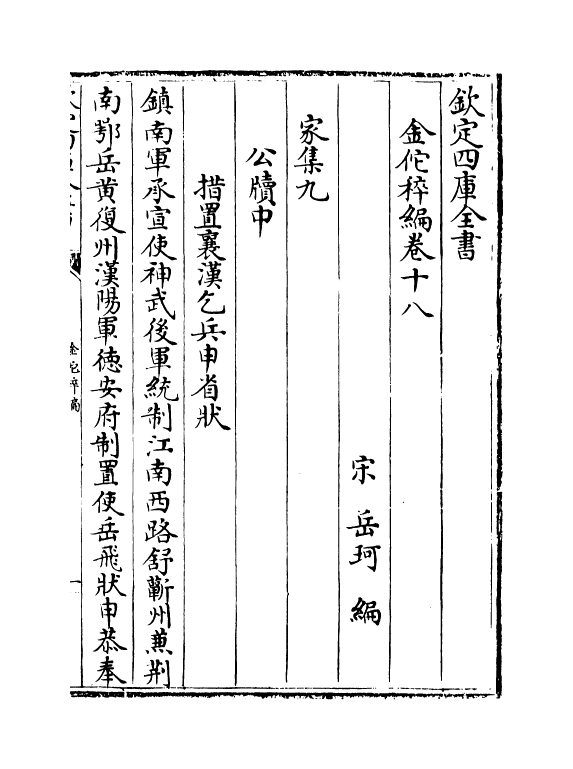 欽定四庫全書
金佗稡編卷十八
宋 岳珂 編
家集九
公牘中
措置襄漢乞兵申省狀
鎮南軍承宣使神武後軍統制江南西路舒蘄州兼荆
南鄂岳黃復州漢陽軍徳安府制置使岳飛狀申恭奉
金佗稡編
一